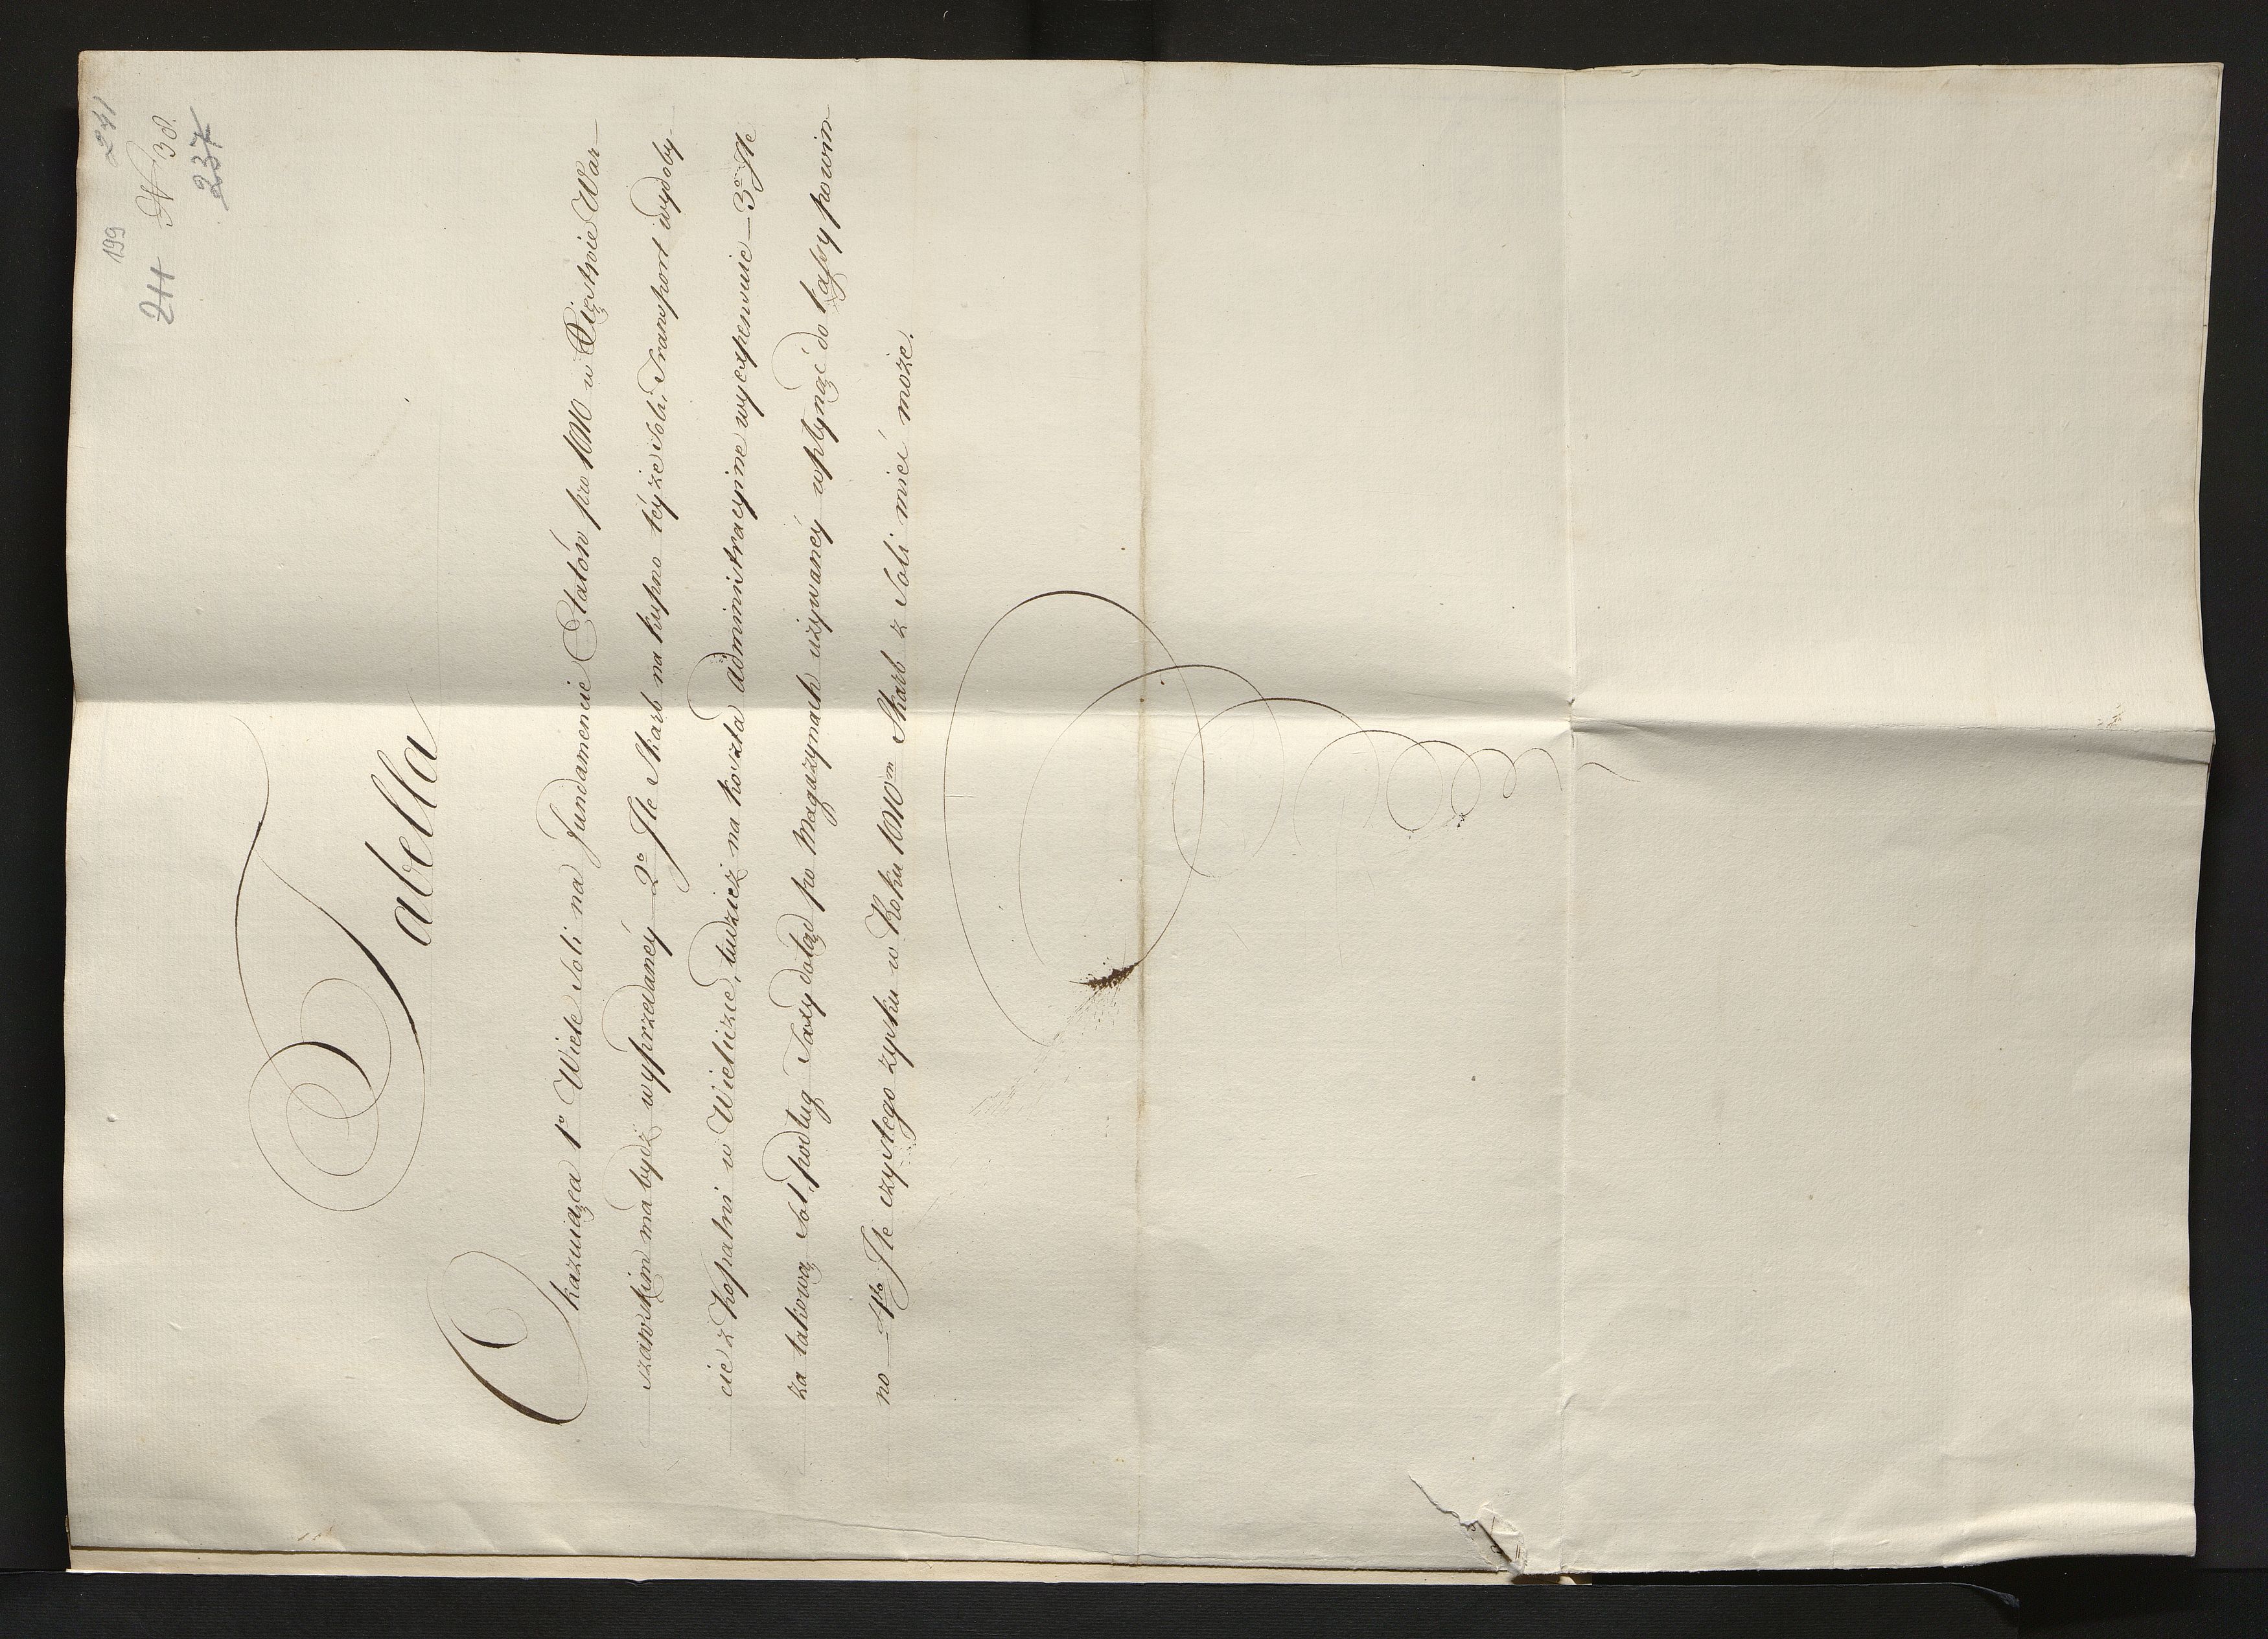 241
199
N 38.
211
237
Tabella
Okazuiąca 1o Wiele Soli na fundamencie Etatów pro 1810 w Xięstwie War-
szawskim ma bydź wyprzedaney 2o Jle Skarb na kupno teyże Soli, Transport wydoby-
cie z kopalni w Wieliczce, tudzież na koszta Administracyine wyexpensuie – 3o Jle
za takową Sol, podług Taxy dotąd po Magazynach używaney wpłynąć do kassy powin
no – 4to Jle czystego zysku w Roku 1810m Skarb z Soli mieć może.